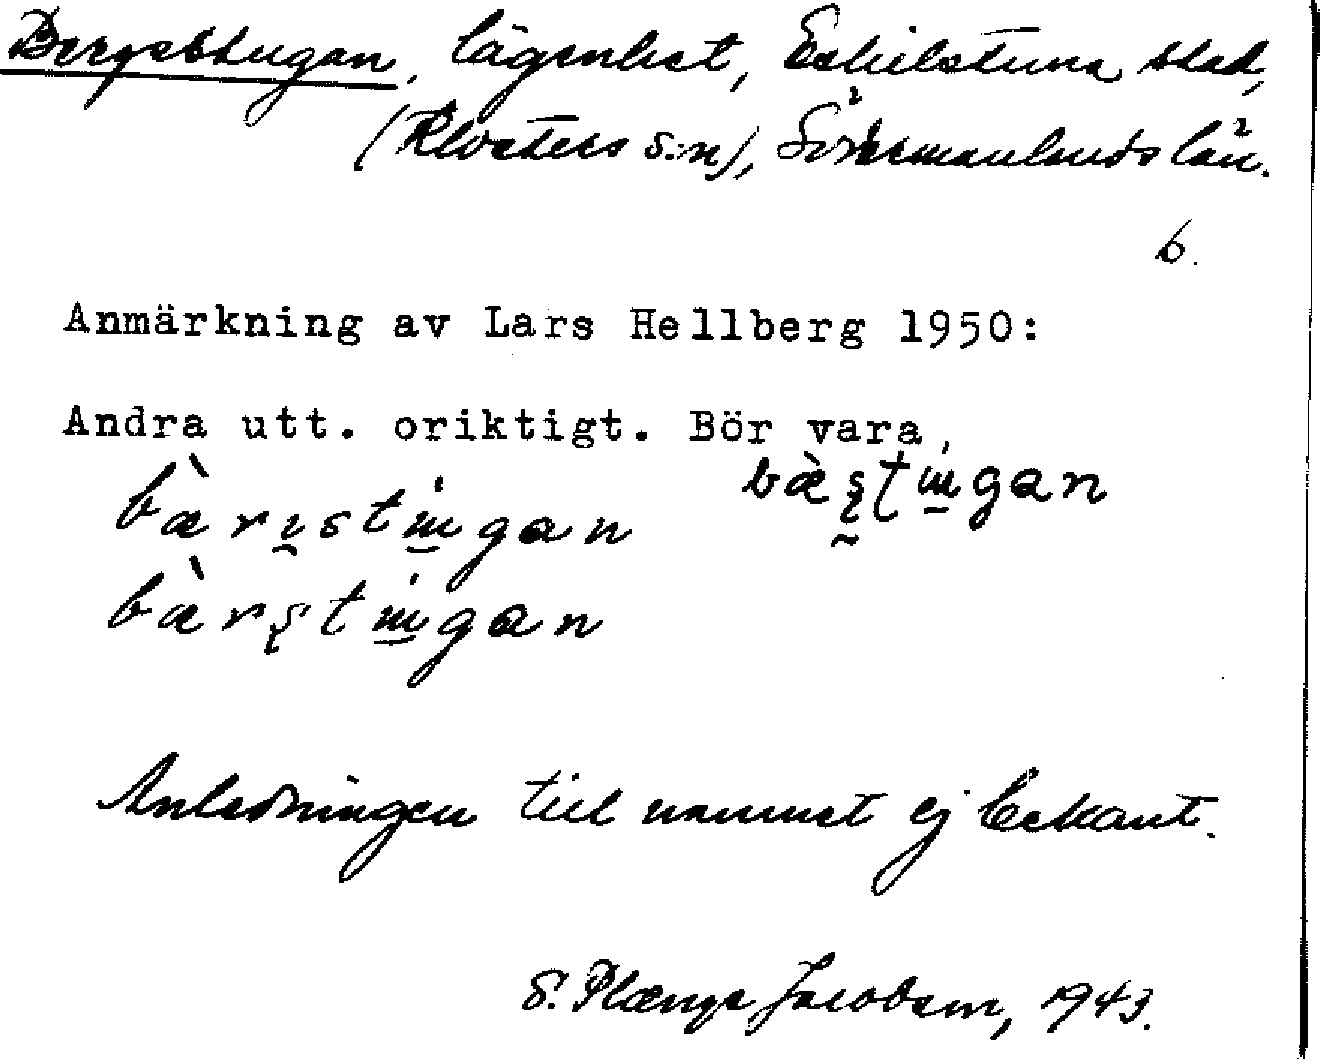 Bergsstugan, lägenhet, Eskilstuna stad,
(Klosters s:n), Södermanlands län.
b.
Anmärkning av Lars Hellberg 1950:
Andra utt. oriktigt. Bör vara,
bæ̀ʂʈɯgan
bæ̀rɪstɯgan
bæ̀rʂtɯgan
Anledningen till namnet ej bekant.
S. Plænge Jacobson, 1943.